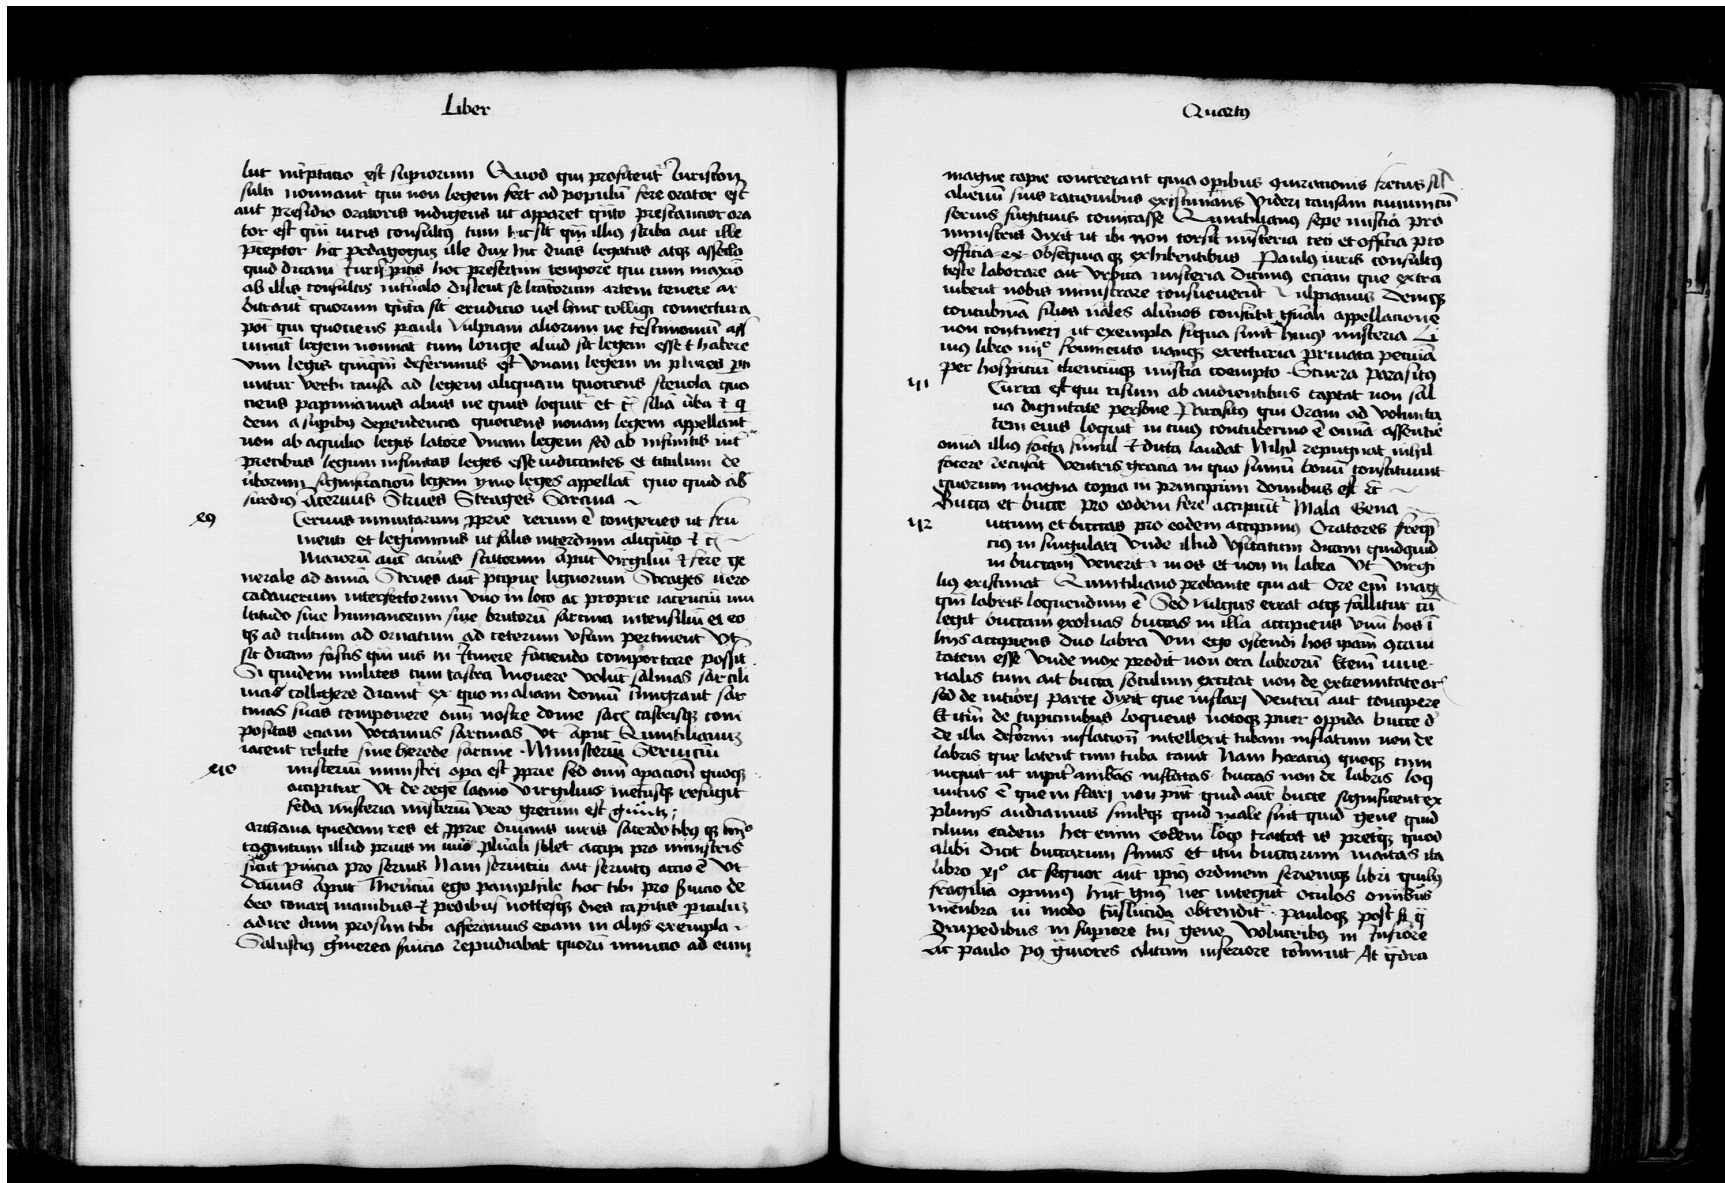 Liber
lut int̃ptacio est supiorum Quod qui profitent̃ Iuriscon
sulti nominant̃ qui non legem fert ad populũ fere orator est
aut presidio oratoris indigens ut apparet q̃nto prestancior ora
tor est qm̃ iuris consultus tum hic sit qm̃ illius scriba aut ille
p̃ceptor hic pedagogus ille dux hic ducis legatus atq; assecto
quid dicam Iurisp̃itis hoc presertim tempore qui cum maxio
ab illis consultis int̃uallo distent se licitorum artem tenere ar
bitrant̃ quorum q̃nta sit erudicio uel hinc colligi coniectura
pot̃ qui quociens pauli Vulpiani aliorum ue testimoniũ ass
umũt legem nominãt cum longe aliud sit legem esse et habere
uim legis quinqm̃ deferimus est Vnam legem in plures
untur verbi causa ad legem aliquam quociens sceuola quo
ciens papinianus alius ue quis loquit̃ et c̃ similia ũba et q
dem a supibus dependencia quociens nouam legem appellant
non ab aquilio legis latore Vnam legem sed ab infinitis int̃
pretibus legum infinitas leges esse iudicantes et titulum de
ũborum significacioñ legem ymo leges appellãt quo quid ab
surdius Aceruus Strues Strages Sarcina
Ceruus minutarum p̃prie rerum ẽ congeries ut fru
menti et leguminis ut salis interdum aliqũto et c̃
Maiorũ aut̃ acũus scutorum aput virgiliũ et fere ge
nerale ad omia Strues aut̃ p̃cipue lignorum Strages uero
cadauerum interfectorum Vno in loco ac proprie iacenciũ mu
ltitudo siue humanorum siue brutorũ sarcina utensiliũ et eo
q; ad cultum ad ornatum ad ceterum vsum pertinent Vt
sit dicam fascis qm̃ uis in Itinere faciendo comportare possit
Si quidem milites cum castra mouere volũt salmas sarcili
nas colligere dicunt̃ ex quo in aliam domũ imigrant sar
cinas suas componere om̃ nostre dome sarc castrisq; com
positas eciam vocamus sarcinas Vt aput Quintilianum
iacent relicte sine herede sarcine Ministeriũ Seruiciũ
misteriũ ministri opa est p̃prie sed om̃ opacioñ quoq;
accipitur Vt de rege latino Virgilius metusq; refugit
feda misteria misteriũ vero grecum est
archana quedam res et p̃prie diuinis iuris sacerdotibus q;
cognitum illud prius in nũo plũali solet accipi pro ministris
sicut p̃uicia pro seruis Nam seruiciũ aut seruitus actio ẽ Vt
Dauus aput Therẽciũ ego pamphile hoc tibi pro s̃uicio de
beo conari manibus et pedibus noctesq; dies capitis piculum
adire dum prosim tibi afferamus eciam in aliis exempla
Salustius g̃merea s̃uicia repudiabat quorũ inicio ad eum
Quartus
magne copie concrerant quia opibus 9iuracionis fretus sil̃
alienũ suis racionibus existimans Videri causam ciuium cũ
seruis fugitiuis comicasse Quintilianus sepe mistia pro
ministris dixit ut ibi non torsit misteria ceci et officia pro
officia ex obsequia q; exhibentibus Paulus iuris consultus
teste laborare ait Vrbica misteria dicimus eciam que extra
iubent nobis ministrare consueuerũt Vulpianus denuq;
concubinã filios nãles alũnos constitit gñali appellacione
non contineri ut exempla siqua sunt huius misteria Li
uius libro iiij° frumento namq; exetturia priuata pecuniã
per hospitiũ clienciũq; mistia coempto Scurra Parasitus
Curra est qui risum ab audientibus captat non sal
ua dignitate persone Parasitus qui Oram ad volunta
tem eius loquit̃ in cuius contubernio ẽ omnia assentiẽ
omnia illius facta simul et dicta laudat Nihil repugnat nihil
facere recusat Ventris gracia in quo sumũ bonũ constituunt
quorum magna copia in principum domibus est et c̃
Bucca et bucce pro eodem fere accipiunt̃ Mala Gena
uccam et buccas pro eodem accipimus Oratores freq̃
cius in singulari Vnde illud Vsitatum dicam quidquid
in buccam Venerit in os et non in labra Vt Virgi
lius existimat Quintiliano probante qui ait Ore em̃ magis
qm̃ labris loquendum ẽ Sed vulgus errat atq; fallitur cũ
legit buccam exoluas buccas in illa accipiens Vnũ hos ĩ
hiis accipiens duo labra Vnũ ego ostendi hos ipam
tatem esse Vnde mox prodit non ora labrorũ Etem̃ iuue
nalis cum ait bucca foculum excitat non de extremitate or
sed de interiori parte dixit que inflari Ventrũ aut concipere
Et itm̃ de tupicinibus loquens notoq; puer oppida bucce d̃
de illa deformi inflacioñ intellexit tubam inflatum non de
labris que latent cum tuba canit Nam horacius quoq; cum
inquit ut iupiter ambas inflatas buccas non de labris loq
uutus ẽ que inflari non pñt quid aut̃ bucce significent ex
plinis audiamus simulq; quid male sint quid gene quid
cilium eadem hec enim eodem loco tractat is pretq; quod
alibi dicit buccarum sinus et itm̃ buccarum inanitas ita
libro xj° ac sequor aut ipius ordinem seriemq; libri quibus
fragilia opimus hñt genus nec integunt oculos omnibus
menbra in modo translucida obtendit̃ pauloq; post
drupedibus in supiore tm̃ gene Volucribus in Inferiore
Ac paulo post g̃uiores alitum inferiore conniunt At